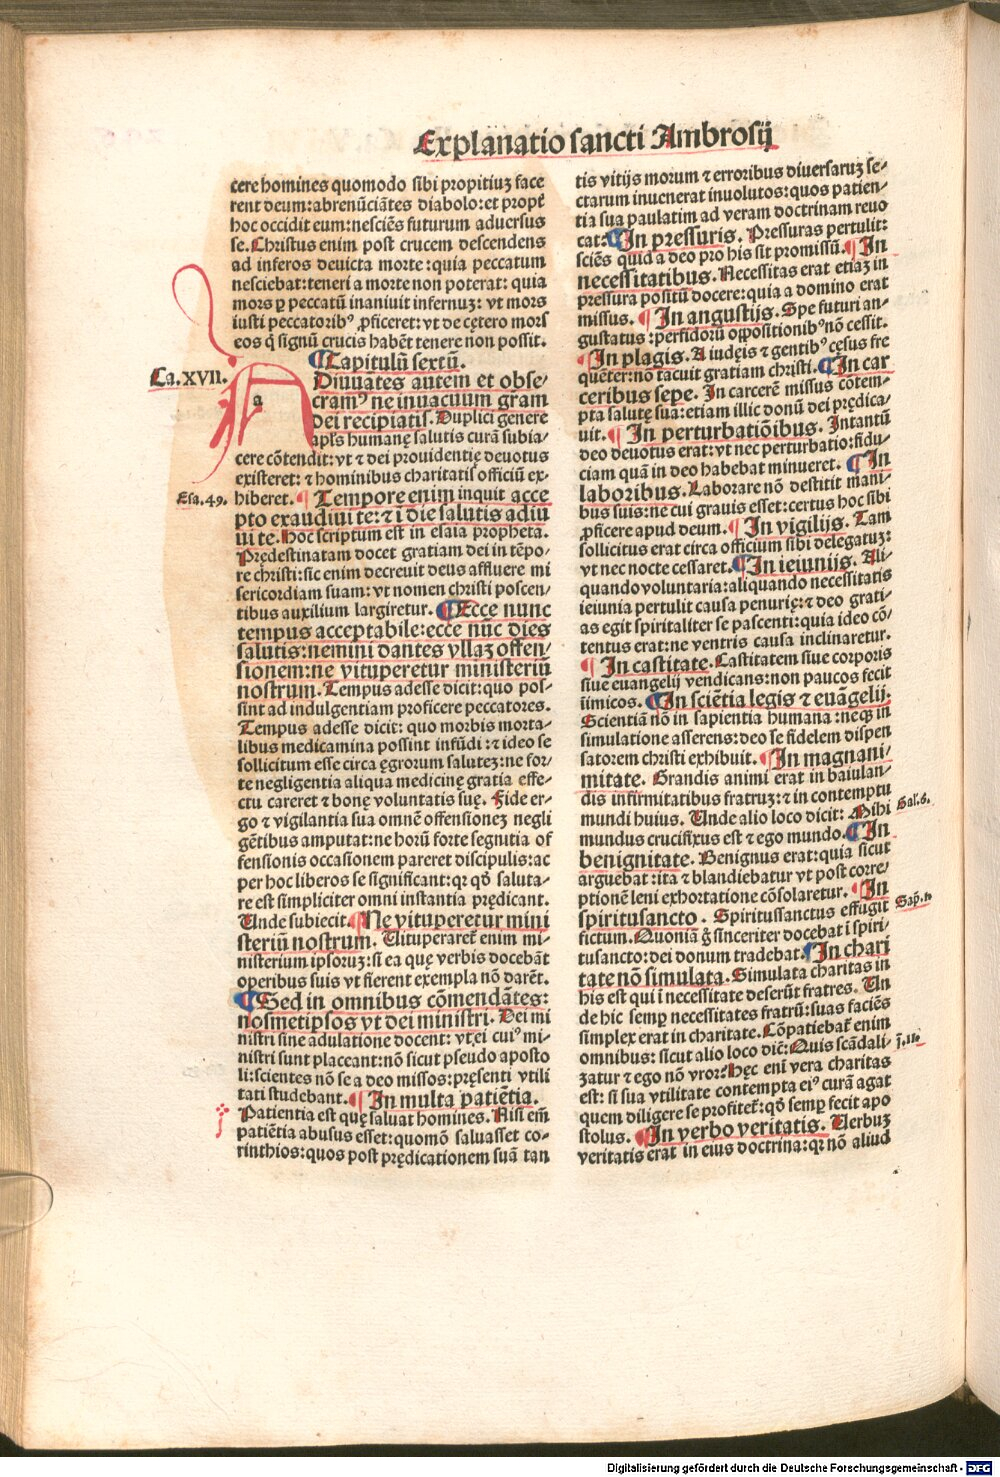 Explanatio sancti Ambrosij
cere homines quomodo sibi propitiuꝫ face
rent deum: abrenũciãtes diabolo: et propt̉
hoc occidit eum: nesciẽs futurum aduersus
se. Christus enim post crucem descendens
ad inferos deuicta morte: quia peccatum
nesciebat: teneri a morte non poterat: quia
mors ꝑ peccatũ inaniuit infernuꝫ: vt mors
iusti peccatoribꝰ ꝓficeret: vt de cętero mors
eos q̇ signũ crucis habẽt tenere non possit.
¶ Capitulũ sextũ.
Ca. XVII.
a
Diuuãtes autem et obse⸗
cramꝰ ne in vacuum gr̃am
dei recipiatis. Duplici genere
apl̃s humanę salutis curã subia⸗
cere cõtendit: vt ⁊ dei prouidentię deuotus
existeret: ⁊ hominibus charitatis officiũ ex⸗
Esa. 49.
hiberet. ¶ Tempore enim inquit acce
pto exaudiui te: ⁊ ĩ die salutis adiu
ui te. Hoc scriptum est in esaia propheta.
Prędestinatam docet gratiam dei in tẽpo⸗
re christi: sic enim decreuit deus affluere mi
sericordiam suam: vt nomen christi poscen⸗
tibus auxilium largiretur. ¶ Ecce nunc
tempus acceptabile: ecce nũc dies
salutis: nemini dantes vllaꝫ offen⸗
sionem: ne vituperetur ministeriũ
nostrum. Tempus adesse dicit: quo pos⸗
sint ad indulgentiam proficere peccatores.
Tempus adesse dicit: quo morbis morta⸗
libus medicamina possint infũdi: ⁊ ideo se
sollicitum esse circa ęgrorum saluteꝫ: ne for⸗
te negligentia aliqua medicinę gratia effe⸗
ctu careret ⁊ bonę voluntatis suę. Fide er⸗
go ⁊ vigilantia sua omnẽ offensioneꝫ negli
gẽtibus amputat: ne horũ forte segnitia of
fensionis occasionem pareret discipulis: ac
per hoc liberos se significant: qꝛ qđ saluta⸗
re est simpliciter omni instantia prędicant.
Unde subiecit. ¶ Ne vituperetur mini
steriũ nostrum. Uituperaret̉ enim mi⸗
nisterium ipsoruꝫ: si ea quę verbis docebãt
operibus suis vt fierent exempla nõ darẽt.
¶ Sed in omnibus cõmendãtes:
nosmetipsos vt dei ministri. Dei mi
nistri sine adulatione docent: vt ei cuiꝰ mi⸗
nistri sunt placeant: nõ sicut pseudo aposto
li: scientes nõ se a deo missos: pręsenti vtili
tati studebant. ¶ In multa patiẽtia.
Patientia est quę saluat homines. Nisi em̃
patiẽtia abusus esset: quomõ saluasset co⸗
rinthios: quos post prędicationem suã tan
tis vitijs morum ⁊ erroribus diuersaruꝫ se⸗
ctarum inuenerat inuolutos: quos patien⸗
tia sua paulatim ad veram doctrinam reuo
cat: ¶ In pressuris. Pressuras pertulit:
sciẽs quid a deo pro his sit promissũ. ¶ In
necessitatibus. Necessitas erat etiaꝫ in
pressura positũ docere: quia a domino erat
missus. ¶ In angustijs. Spe futuri an⸗
gustatus: perfidorũ oppositionibꝰ nõ cessit.
¶ In plagis. A iudęis ⁊ gentibꝰ cęsus fre
quẽter: nõ tacuit gratiam christi. ¶ In car
ceribus sepe. In carcerẽ missus cõtem⸗
pta salutę sua: etiam illic donũ dei prędica⸗
uit. ¶ In perturbatiõibus. Intantũ
deo deuotus erat: vt nec perturbatio: fidu⸗
ciam quã in deo habebat minueret. ¶ In
laboribus. Laborare nõ destitit mani⸗
bus suis: ne cui grauis esset: certus hoc sibi
ꝓficere apud deum. ¶ In vigilijs. Tam
sollicitus erat circa officium sibi delegatuꝫ:
vt nec nocte cessaret. ¶ In ieiunijs. Ali⸗
quando voluntaria: aliquando necessitatis
ieiunia pertulit causa penurię: ⁊ deo grati⸗
as egit spiritaliter se pascenti: quia ideo cõ⸗
tentus erat: ne ventris causa inclinaretur.
¶ In castitate. Castitatem siue corporis
siue euangelij vendicans: non paucos fecit
iĩmicos. ¶ In sciẽtia legis ⁊ euãgelij.
Scientiã nõ in sapientia humana: neqꝫ in
simulatione asserens: deo se fidelem dispen
satorem christi exhibuit. ¶ In magnani⸗
mitate. Grandis animi erat in baiulan⸗
dis infirmitatibus fratruꝫ: ⁊ in contemptu
mundi huius. Unde alio loco dicit: Mihi
Gal. 6.
mundus crucifixus est ⁊ ego mundo. ¶ In
benignitate. Benignus erat: quia sicut
arguebat: ita ⁊ blandiebatur vt post corre⸗
ptionẽ leni exhortatione cõsolaretur. ¶ In
spiritusancto. Spiritussanctus effugit
Sap. 1.
fictum. Quoniã g̃ sinceriter docebat ĩ spiri⸗
tusancto: dei donum tradebat. ¶ In chari
tate nõ simulata. Simulata charitas in
his est qui ĩ necessitate deserũt fratres. Un
de hic semꝑ necessitates fratrũ: suas faciẽs
simplex erat in charitate. Cõpatiebat̉ enim
omnibus: sicut alio loco dic̃: Quis scãdali⸗
j. 11.
zatur ⁊ ego nõ vror? Hęc em̃ vera charitas
est: si sua vtilitate contempta eiꝰ curã agat
quem diligere se profitet̉: qđ semꝑ fecit apo
stolus. ¶ In verbo veritatis. Uerbuꝫ
veritatis erat in eius doctrina: qꝛ nõ aliud
Digitalisierung gefördert durch die Deutsche Forschungsgemeinschaft - DFG